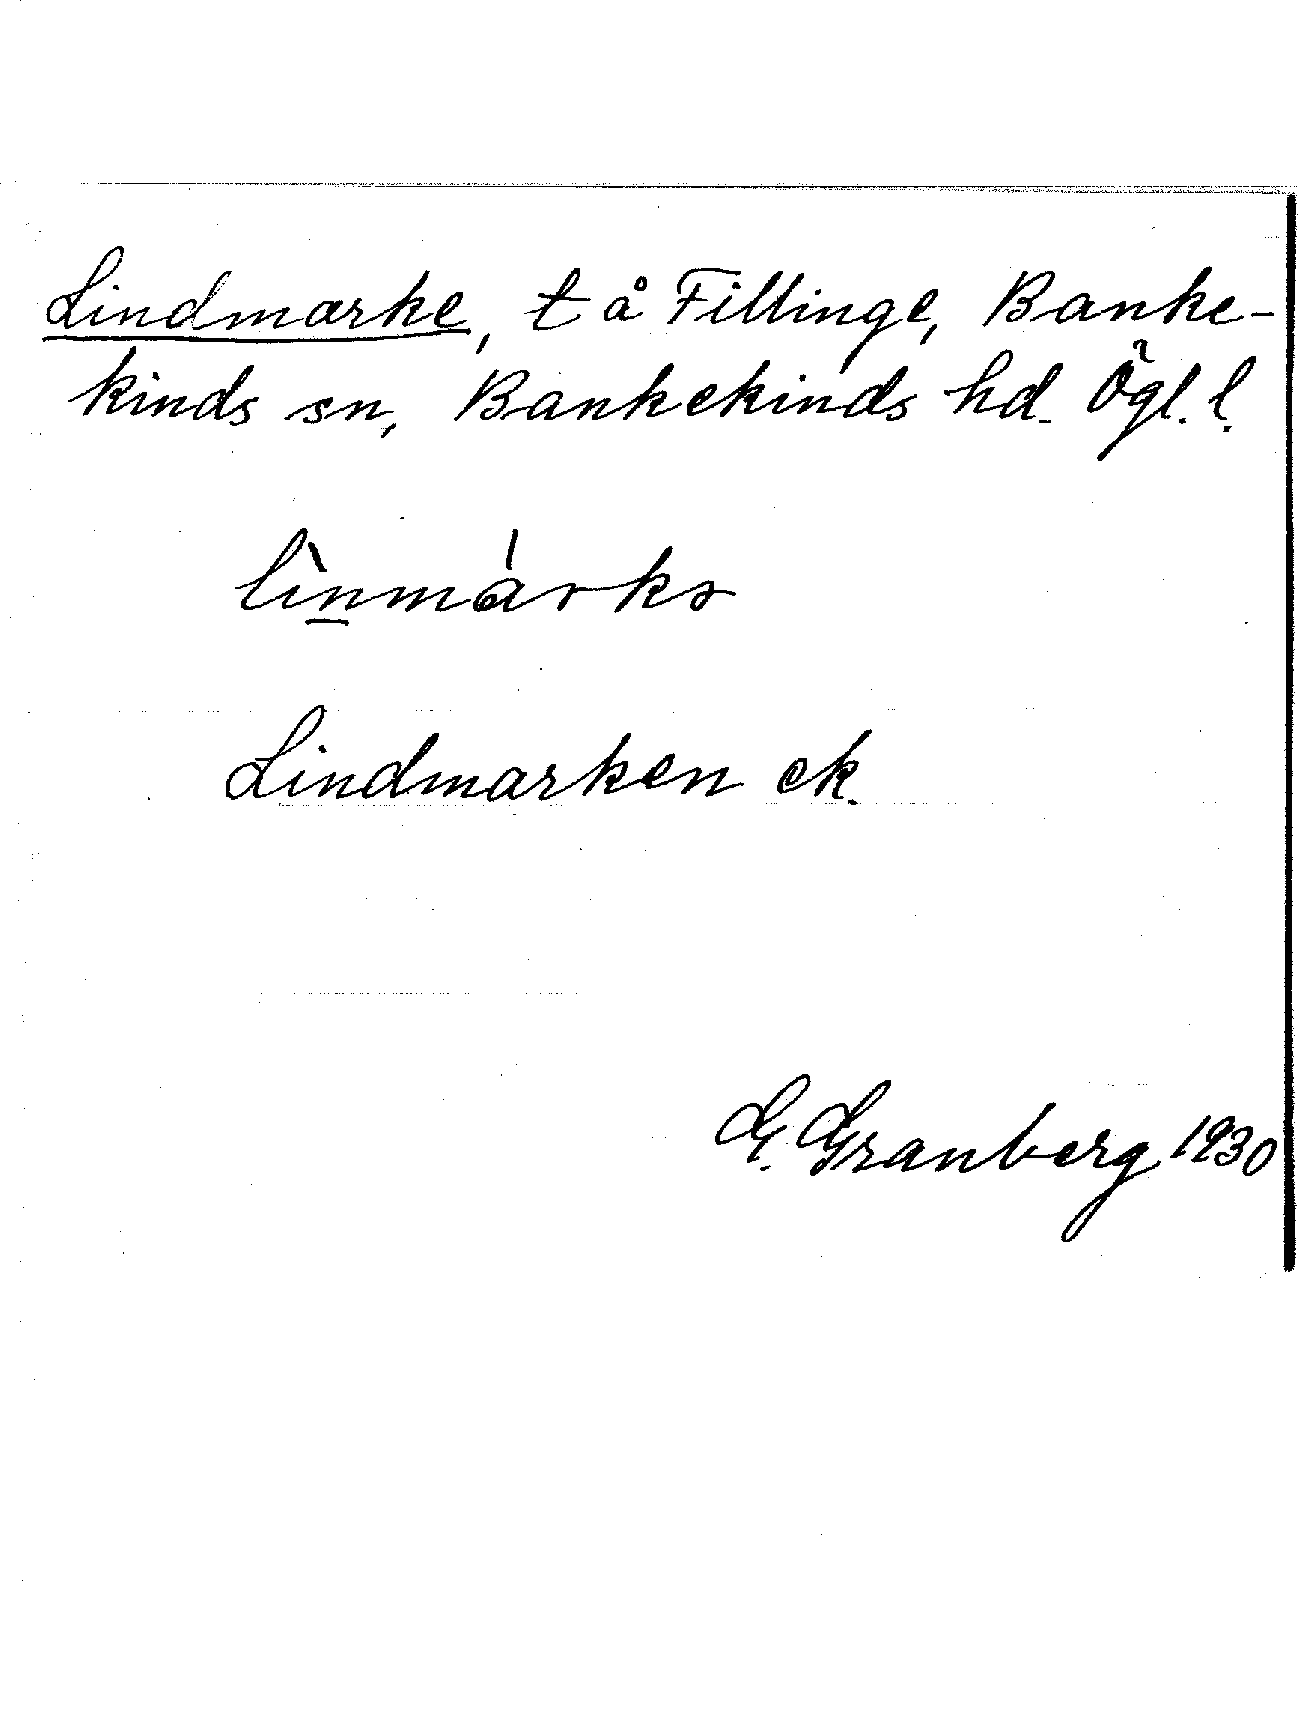 Lindmarke, t å Fillinge, Banke-
kinds sn, Bankekinds hd. Ögl. l.
lìnmárkə
Lindmarken ek.
G. Granberg 1930